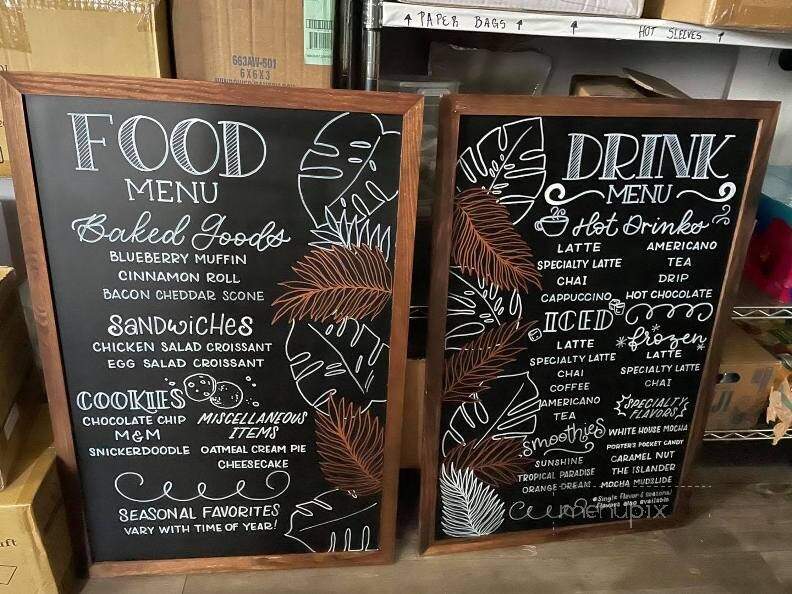 PAPER BAGS
HOT SLEEVES
663AW-601
6X6X3
FOOD
MENU
Baked Goods
BLUEBERRY MUFFIN
CINNAMON ROLL
BACON CHEDDAR SCONE
SANDWICHES
CHICKEN SALAD CROISSANT
EGG SALAD CROISSANT
COOKIES
CHOCOLATE CHIP
M&M
SNICKERDOODLE
MISCELLANEOUS
ITEMS
OATMEAL CREAM PIE
CHEESECAKE
SEASONAL FAVORITES
VARY WITH TIME OF YEAR!
DRINK
MENU
Hot Drinks
LATTE
SPECIALTY LATTE
CHAI
CAPPUCCINO
AMERICANO
TEA
DRIP
HOT CHOCOLATE
ICED
LATTE
SPECIALTY LATTE
CHAI
COFFEE
AMERICANO
TEA
frozen
LATTE
SPECIALTY LATTE
CHAI
smoothies
SUNSHINE
TROPICAL PARADISE
ORANGE DREAM
SPECIALTY
FLAVORS
WHITE HOUSE MOCHA
PORTER'S POCKET CANDY
CARAMEL NUT
THE ISLANDER
MOCHA MUDSLIDE
*Single flavor & seasonal
flavors also available
menupix